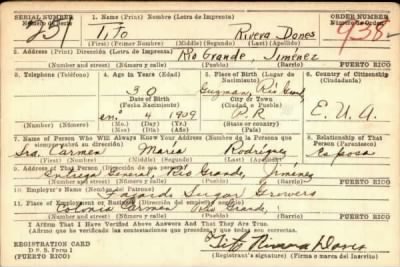 SERIAL NUMBER
Número de Serie
1. Name (Print) Nombre (Letra de Imprenta)
ORDER NUMBER
Número de Orden
231
Tito
Rivera Dones
938
(First) (Primer Nombre) (Middle) (Segundo) (Last) (Apellido)
2. Address (Print) Dirección (Letra de Imprenta)
Rio Grande, Jiménez
(Number and street) (Número y calle) (Pueblo) (Barrio) PUERTO RICO
3. Telephone (Teléfono)
4. Age in Years (Edad)
5. Place of Birth (Lugar de Nacimiento)
6. Country of Citizenship (Ciudadanía)
30
Guzman, Rio Grande
Date of Birth
Fecha Nacimiento
City or Town
(Ciudad o Pueblo)
P.R.
E.U.A.
en° 4 1909
(Mo.) (Day) (Yr.)
(Mes) (Día) (Año)
State or Country
7. Name of Person Who Will Always Know Your Address (Nombre de la Persona que siempre sabrá su dirección)
8. Relationship of That Person (Parentesco)
Sra. Carmen Maria Rodriguez
Esposa
(First) (Nombre) (Middle) (Segundo) (Last) (Apellido)
9. Address of That Person (Dirección de esa persona)
General, Rio Grande, Jiménez
(Number and street) (Número y calle) (Pueblo) (Barrio) PUERTO RICO
10. Employer's Name (Nombre del Patrono)
Sugar Growers
11. Place of Employment or Business
Colonia Carmen Rio Grande
(Number and street) (Número y calle) (Pueblo) (Barrio) PUERTO RICO
I Affirm That I Have Verified Above Answers And That They Are True.
(Afirmo que he verificado las contestaciones que preceden y que son ciertas.)
REGISTRATION CARD
D. S. S. Form 1
(PUERTO RICO)
Tito Rivera Dones
(Registrant's signature) (Firma o marca del Inscrito)